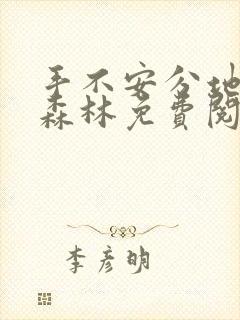 手不安分地
森林免费阅
李彦明